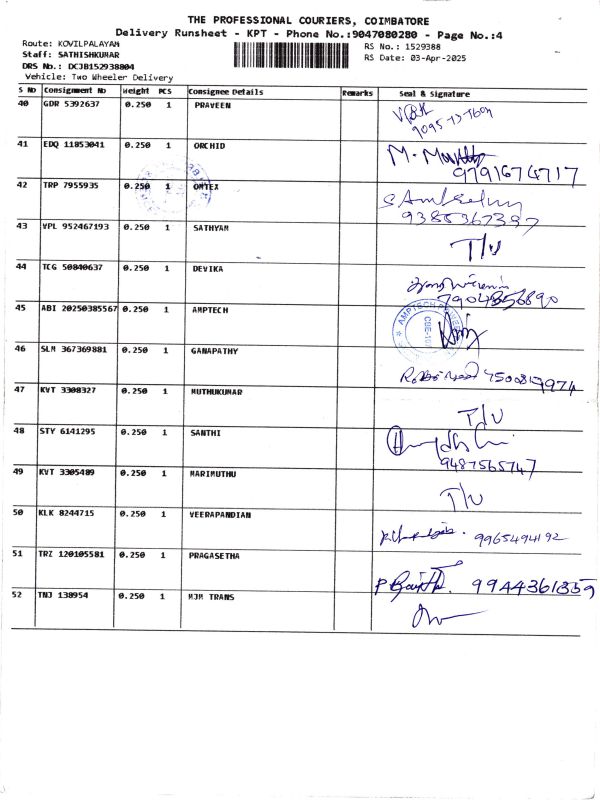 THE PROFESSIONAL COURIERS, COIMBATORE
Delivery Runsheet - KPT - Phone No.:9047080280 - Page No.:4
Route: KOVILPALAYAM
RS No.: 1529388
Staff: SATHISHKUMAR
RS Date: 03-Apr-2025
DRS No.: DCJB152938804
Vehicle: Two Wheeler Delivery
S No Consignment No Weight PCS Consignee Details Remarks Seal & Signature
40 GDR 5392637 0.250 1 PRAVEEN
41 EDQ 11853041 0.250 1 ORCHID
9791674717
42 TRP 7955935 0.250 1 OMTEX
9385367397
43 VPL 952467193 0.250 1 SATHYAM
T/U
44 TCG 50840637 0.250 1 DEVIKA
45 ABI 20250385567 0.250 1 AMPTECH
46 SLM 367369881 0.250 1 GANAPATHY
47 KVT 3308327 0.250 1 MUTHUKUMAR
T/U
48 STY 6141295 0.250 1 SANTHI
9487565747
49 KVT 3305489 0.250 1 MARIMUTHU
T/U
50 KLK 8244715 0.250 1 VEERAPANDIAN
9965494192
51 TRZ 120105581 0.250 1 PRAGASETHA
9944361359
52 TNJ 138954 0.250 1 MJM TRANS